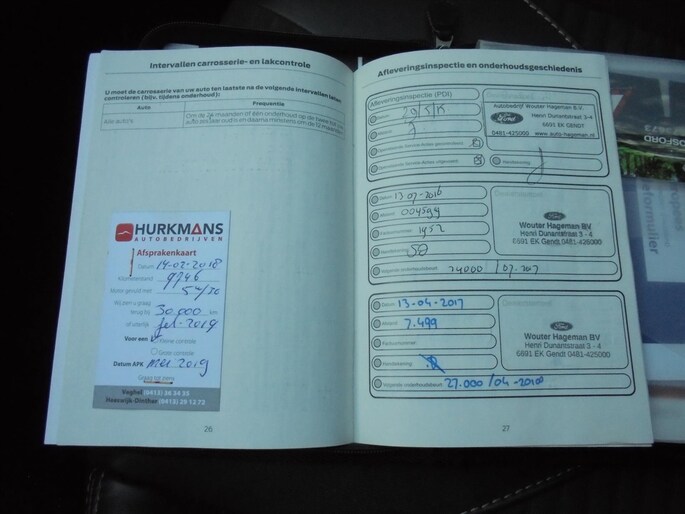 Intervallen carrosserie- en lakcontrole
U moet de carrosserie van uw auto ten laatste na de volgende intervallen laten
controleren (bijv. tijdens onderhoud):
Auto
Frequentie
Alle auto's
HURKMANS
AUTOBEDRIJVEN
Afsprakenkaart
Datum 14-02-2018
Kilometerstand 9746
Motor gevuld met 5W/30
Wij zien u graag
terug bij 30.000 km
of uiterlijk feb-2019
Voor een Kleine controle
Grote controle
Datum APK mei 2019
Graag tot ziens
Veghel (0413) 36 34 55
Heeswijk-Dinther (0413) 29 12 72
26
Afleveringsinspectie en onderhoudsgeschiedenis
Afleveringsinspectie (PDI)
Datum 29/5/15
7
Autobedrijf Wouter Hageman B.V.
Ford
Henri Dunantstraat 3-4
6691 EK GENDT
0481-425000 www.auto-hageman.nl
Handtekening
Datum 13-07-2016
004599
1452
24000 / 07-2017
Ford
Wouter Hageman BV
Henri Dunantstraat 3 - 4
6691 EK Gendt 0481-425000
Datum 13-04-2017
7.499
Handtekening
Volgende onderhoudsbeurt 27.000 /04-2018
Ford
Wouter Hageman BV
Henri Dunantstraat 3 - 4
6691 EK Gendt 0481-425000
27